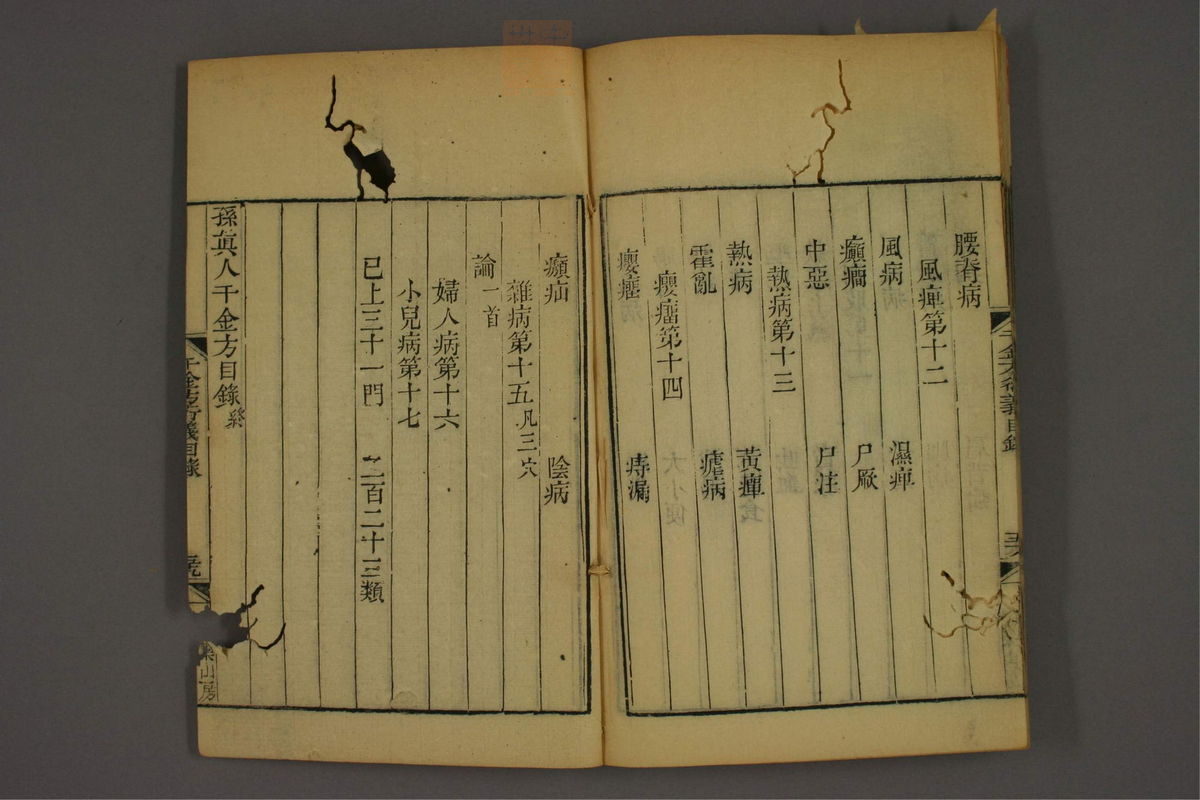 腰脊病
風痺第十二
風病 濕痺
癲癎 尸厥
中惡 尸注
熱病第十三
熱病 黃疸
霍亂 瘧病
癭瘤第十四
癭瘤 痔漏
癩疝 陰病
雜病第十五凡三穴
論一首
婦人病第十六
小兒病第十七
已上三十一門 二百二十三類
孫真人千金方目錄終
千金方衍義目錄
千金方衍義目錄
葉山房